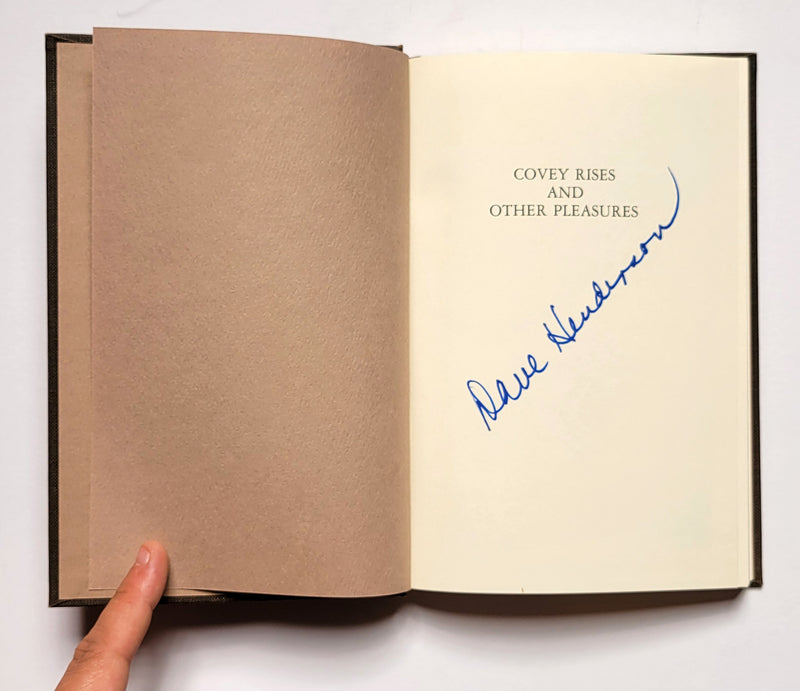 COVEY RISES
AND
OTHER PLEASURES
Dave Henderson